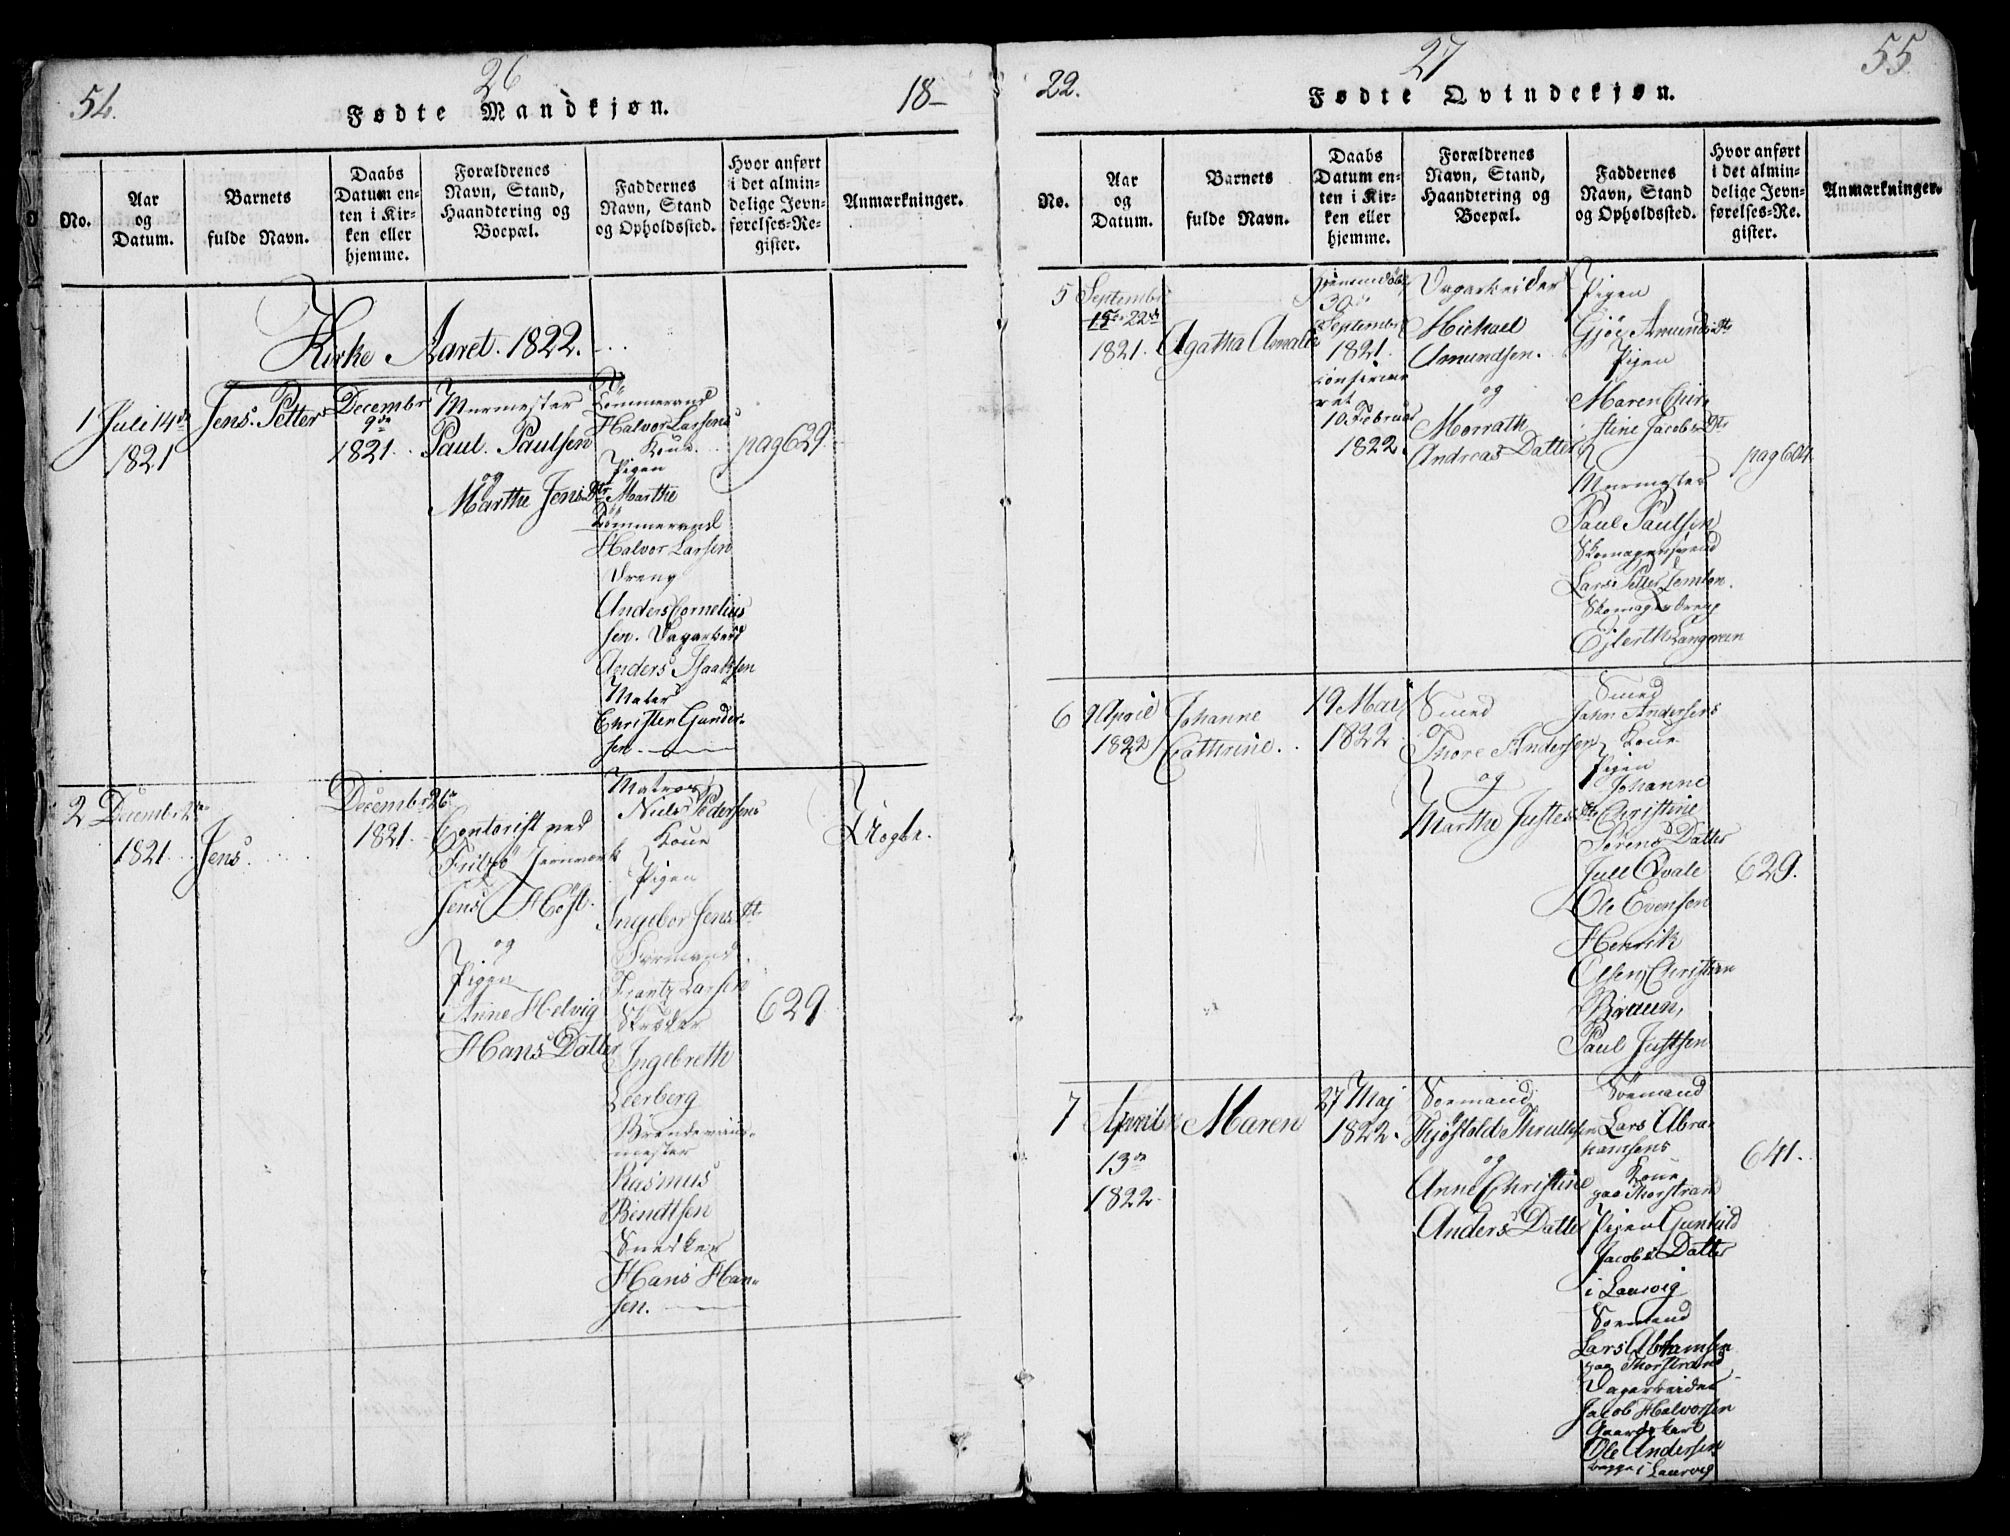 54.
26
Fødte Mandkjøn.
18-
No.
Aar
og
Datum.
Barnets
fulde Navn.
Daabs
Datum en-
ten i Kir-
ken eller
hjemme.
Forældrenes
Navn, Stand,
Haandtering og
Boepæl.
Faddernes
Navn, Stand
og Opholdssted.
Hvor anført
i det almin-
delige Jevn-
førelses-Re-
gister.
Anmærkninger.
Kirke Aaret. 1822.
1
Juli 14de
1821
Jens Petter
Decembr
9de
1821.
Muurmester
Paul Paulsen
og
Marthe Jens Dtr
Tömmermand
Halvor Larsens
Kone.
Pigen
Marthe
Tömmermand
Halvor Larsen
Dreng
Anders Cornelius
sen. Dagarbeid
Anders Isaaksen
Mater
Christen Gunder-
sen.
pag 629
2
Decembr 2de
1821.
Jens.
Decembr 26de
1821.
Contorist ved
Fritzö Jernværk
Jens Höst.
og
Pigen
Anne Helvig
Hans Datter
Matros
Niels Pedersens
Kone
Pigen
Ingebor Jens Dtr
Sørmand
Frantz Larsen
Skræder
Ingebreth
Leerberg
Brændeviins-
mester
Rasmus
Bendtsen
Snedker
Hans Han-
sen.
629
22.
27
Fødte Qvindekjøn.
55.
No.
Aar
og
Datum.
Barnets
fulde Navn.
Daabs
Datum en-
ten i Kir-
ken eller
hjemme.
Forældrenes
Navn, Stand,
Haandtering og
Boepæl.
Faddernes
Navn, Stand
og Opholdssted.
Hvor anført
i det almin-
delige Jevn-
førelses-Re-
gister.
Anmærkninger.
5
Septembr
22de
1821.
Agatha Amalie
Hjemmedöbt
30de
Septembr
1821.
confirme
ret
10 Februar
1822.
Dagarbeider
Michael
Amundsen.
og
Morrath
Andreas Datter
Pigen
Gjöe Amunds Dtr
Pigen
Maren Chir
stine Jacobs Dtr
Muurmester
Paul Paulsen
Skomagersvend
Lars Petter Jemtsen.
Skomagerdreng
Ejlerth Langveen
pag 607
6
9 April
1822
Johanne
Cathrine.
19 Maij
1822
Smed
Thore Andersen
og
Marthe Justes Dtr
Smed
Jahn Andersens
Kone
Pigen
Johanne
Christine
Sörens Datter
Jull Qvale
Ole Evensen
Henrik
Olsen, Christian
Braun,
Paul Justsen
629.
7
April
13de
1822.
Maren
27 Maj
1822.
Soemand
Thjöstold Thrulsen
og
Anne Christine
Anders Datter
Soemand
Lars Abra-
hamsens
Kone
paa Thorstrand
Pigen Gunhild
Jacobs Datter
i Laurvig
Soemand
Lars Abrhamsen
paa Thorstrand
Dagarbeider
Jacob Halvorsen
Gaardskarl
Ole Andersen
begge i Laurvig
641.